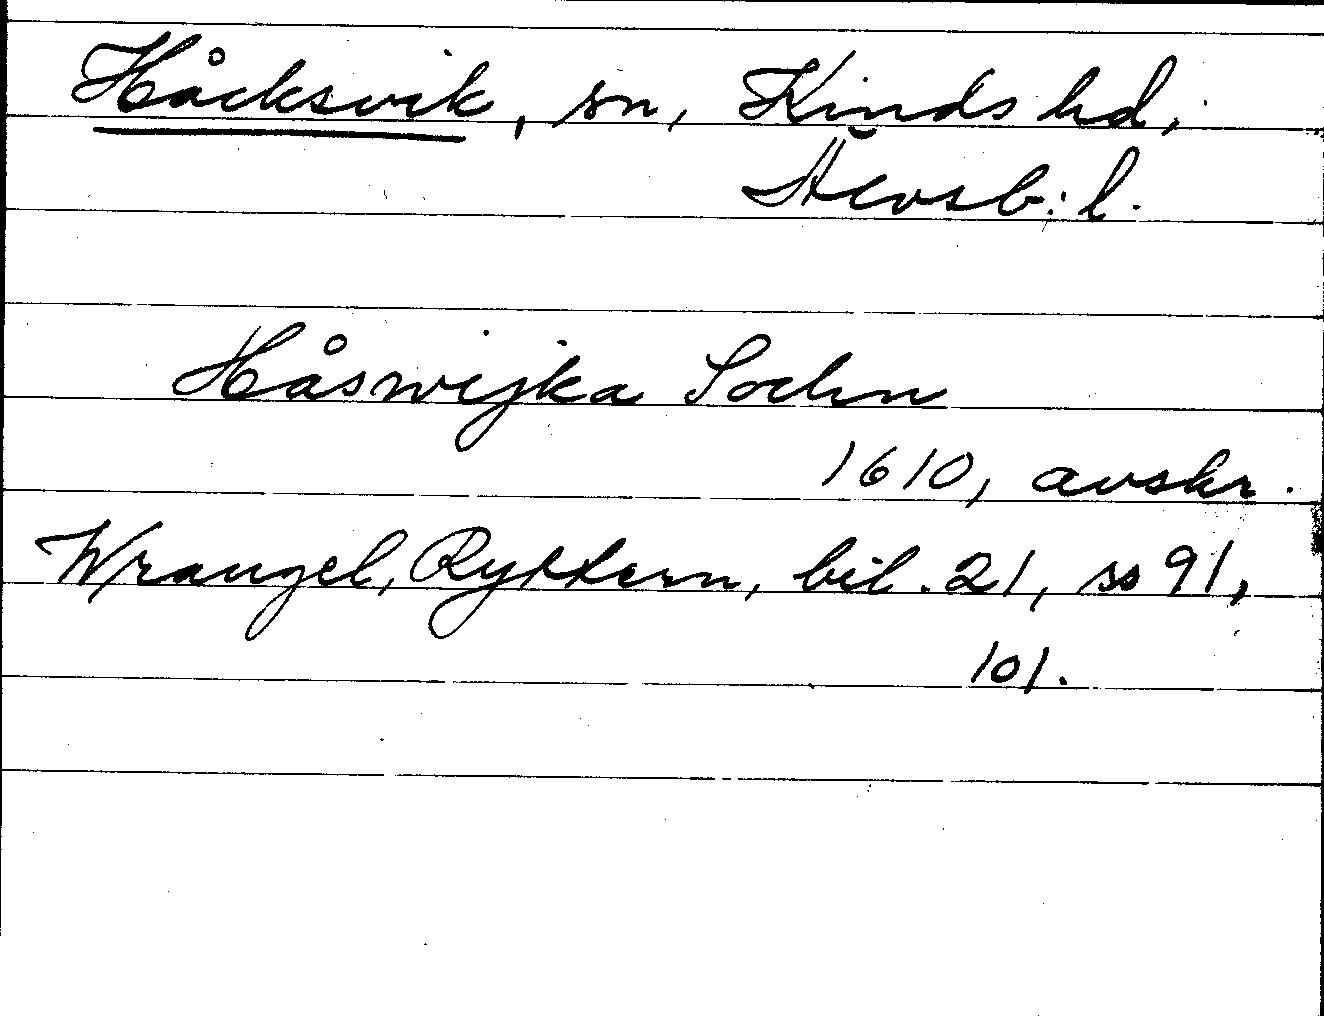 Håcksvik, sn, Kinds hd,
Älvsb: l.
Håswijka Sochn
1610, avskr.
Wrangel, Ryttern, bil. 21, ss 91,
101.